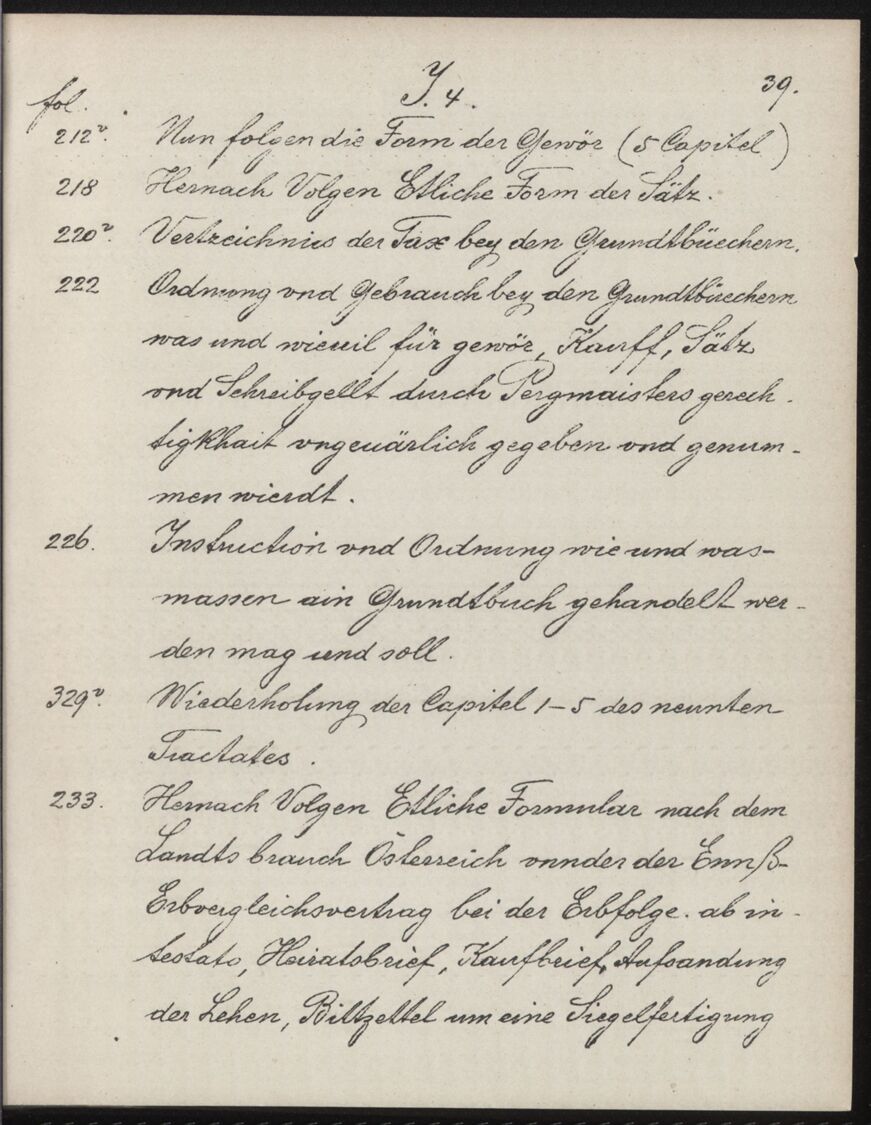 J. 4. 39.
fol.
212v. Nun folgen die Form der Gewör (5 Capitel)
218 Hernach Volgen Etliche Form der Sätz.
220v. Vertzeichnis der Tax bey den Grundtbüechern.
222 Ordnung vnd Gebrauch bey den Grundtbüechern
was und wieuil für gewör, Kauff, Sätz
vnd Schreibgellt durch Pergmaisters gerech-
tigkhait vngeuärlich gegeben vnd genum-
men wierdt.
226. Instruction vnd Ordnung wie und was-
massen ain Grundtbuch gehandelt wer-
den mag und soll.
329v. Wiederholung der Capitel 1–5 des neunten
Tractates.
233. Hernach Volgen Etliche Formular nach dem
Landts brauch Österreich vnnder der Ennß-
Erbvergleichsvertrag bei der Erbfolge. ab in-
testato, Heiratsbrief, Kaufbrief, Aufsandung
der Lehen, Bittzettel um eine Siegelfertigung